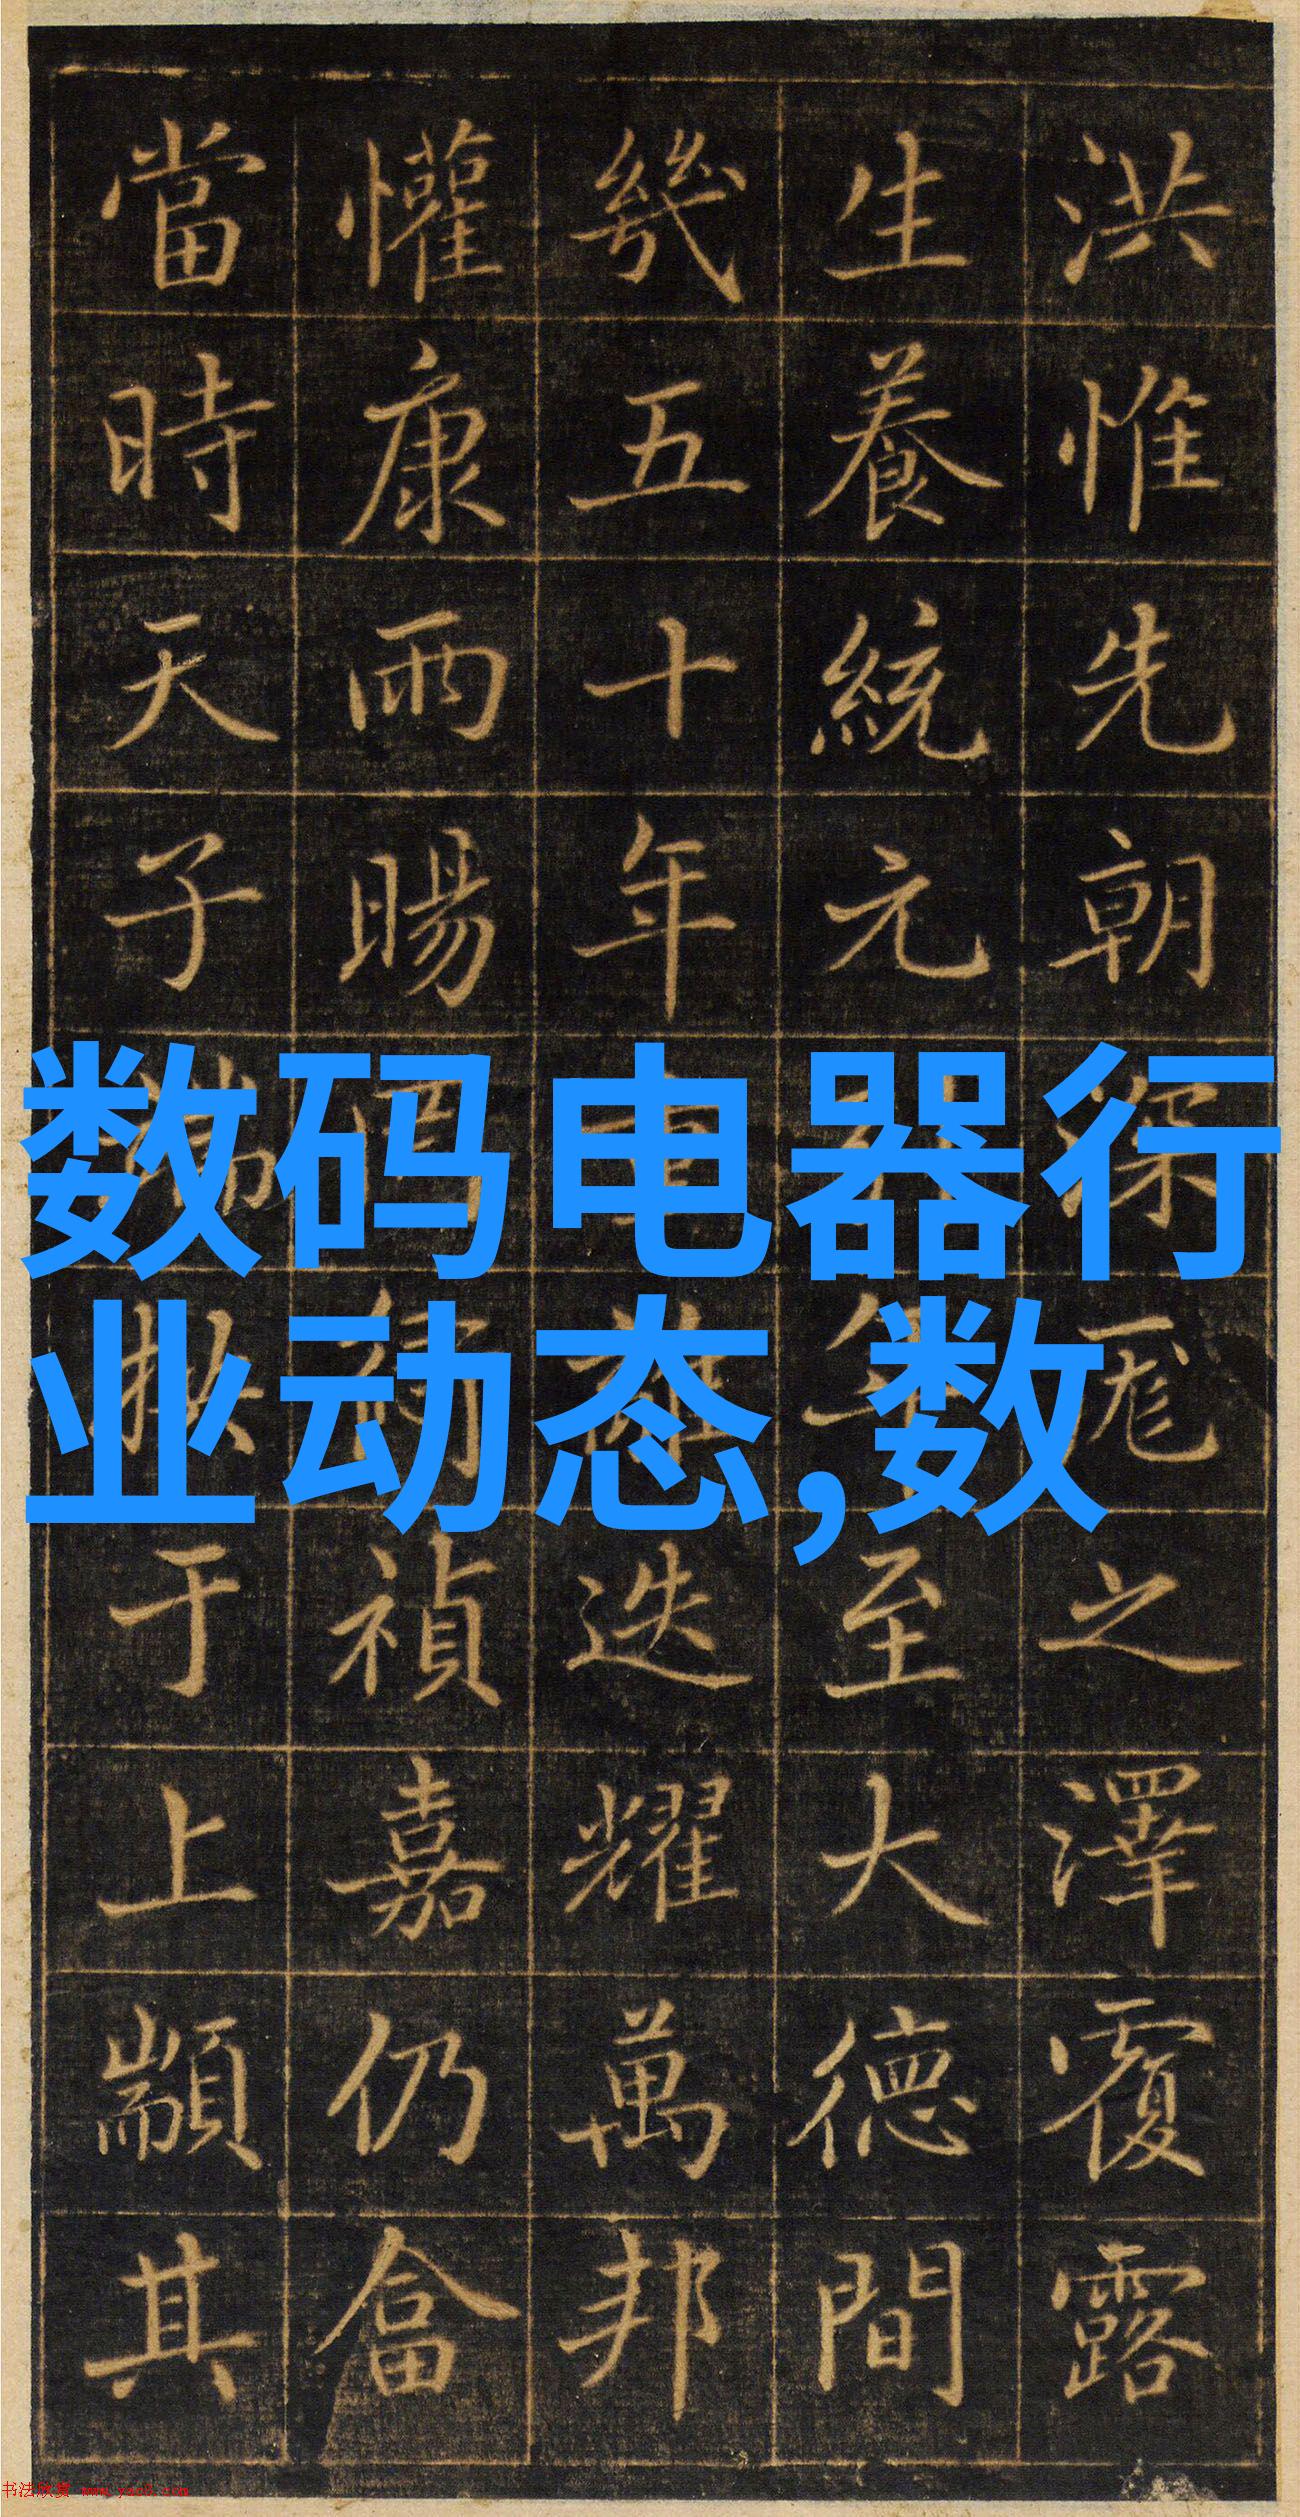 洪惟先朝深厖之澤覆露
生養統元年至大德間
幾五十年重離迭耀萬邦
懽康雨暘符禎嘉仍畣
當時天子端拱于上顒其
数码电器行
业动态,数
书法欣赏 www.yac8.com